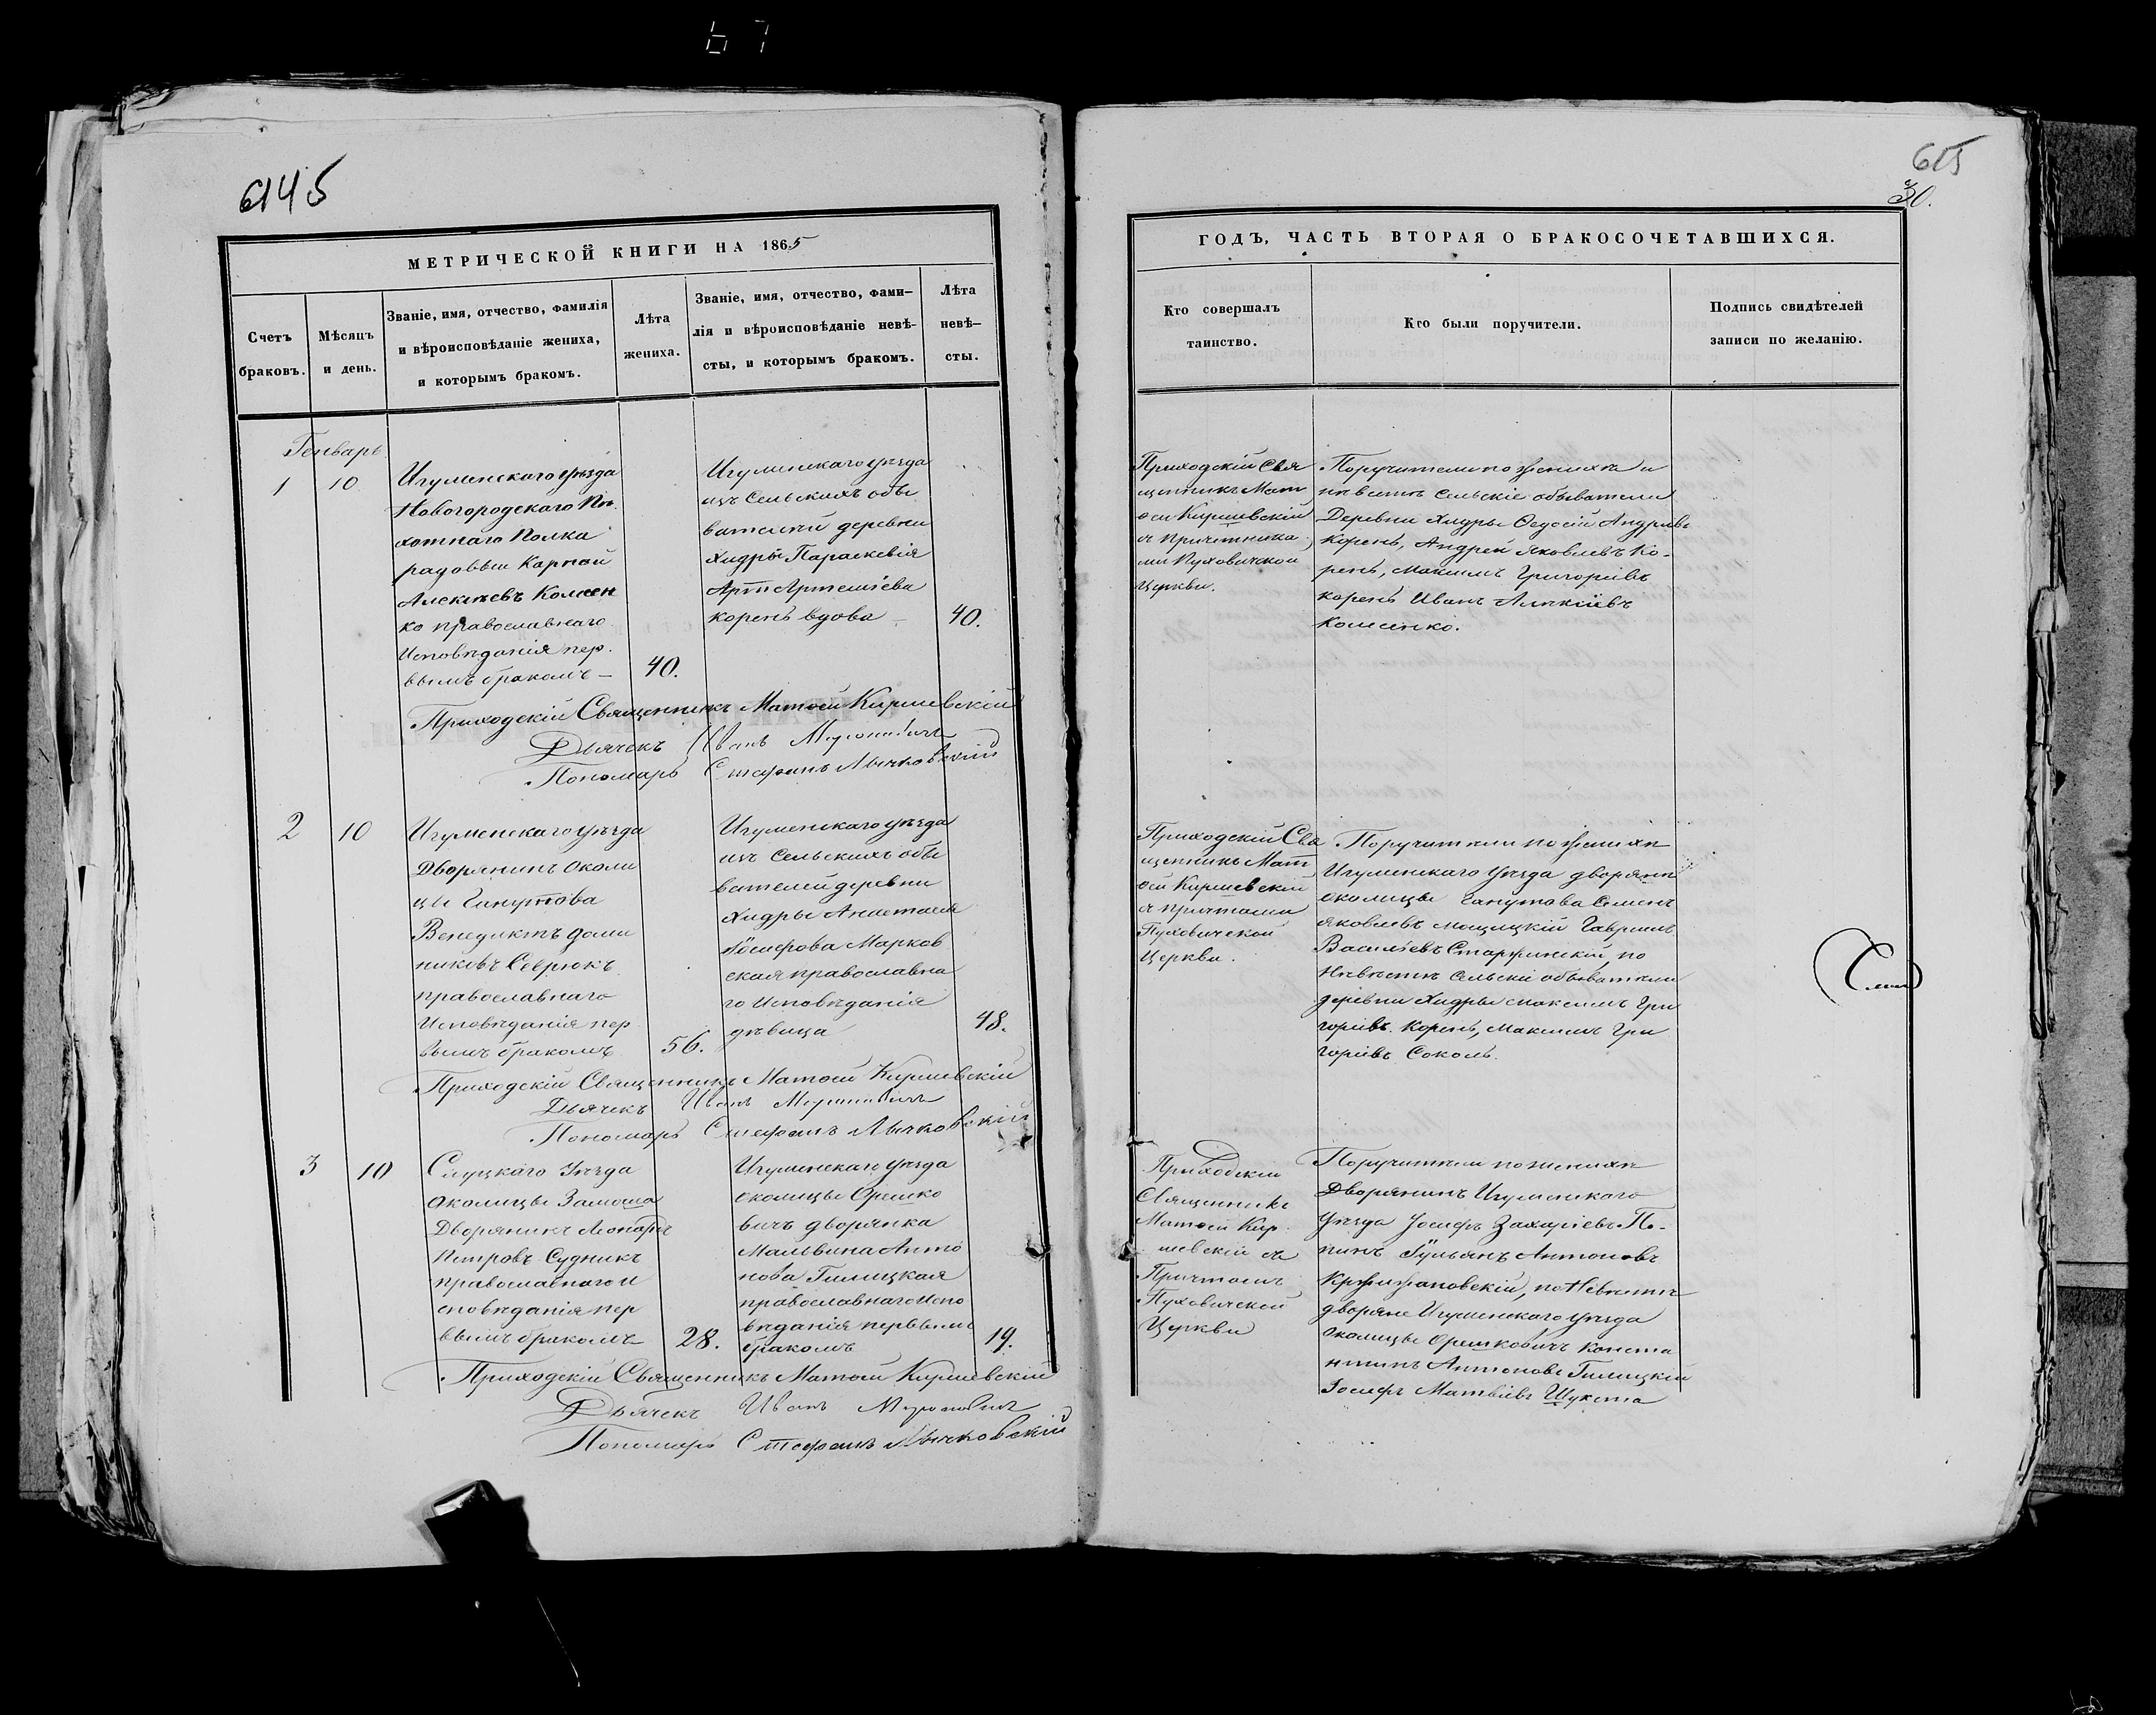 67
6145
МЕТРИЧЕСКОЙ КНИГИ НА 1865
Счетъ
браковъ.
Мѣсяцъ
и день.
Званіе, имя, отчество, фамилія
и вѣроисповѣданіе жениха,
и которымъ бракомъ.
Лѣта
жениха.
Званіе, имя, отчество, фами-
лія и вѣроисповѣданіе невѣ-
сты, и которымъ бракомъ.
Лѣта
невѣ-
сты.
Генварь
1
10
Игуменскаго уѣзда
Новогородскаго Пѣ
хотнаго Полка
радовыи Карпъ
Алексѣевъ
ко православнаго
Исповѣданія пер.
вымъ бракомъ –
40.
Игуменскаго уѣзда
изъ Сельскихъ обы
вателей деревни
Хидры Параскевія
Артеміева
корень вдова
40.
Приходскій Священникъ Матѳей Киршевскій
Дьячекъ Иванъ
Пономарь Стефанъ Лычковскій
2
10
Игуменскаго уѣзда
Дворянинъ Околи
цы Ганутова
Венедиктъ Доми
никовъ Севрюкъ
православнаго
Исповѣданія пер
вымъ бракомъ
56.
Игуменскаго уѣзда
изъ Сельскихъ обы
вателей деревни
Хидры Анастасія
Іосифова Марков
ская православна
го Исповѣданія
дѣвица
48.
Приходскій Священникъ Матѳей Киршевскій
Дьячекъ Иванъ
Пономарь Стефанъ Лычковскій
3
10
Слуцкаго Уѣзда
околицы Замоша
Дворянинъ Леонардъ
Петровъ Судникъ
православнаго И
сповѣданія пер
вымъ бракомъ
28.
Игуменскаго уѣзда
околицы Орешко
вичъ дворянка
Мальвина Анто
нова Гилицкая
православнаго Испо
вѣданія первымъ
бракомъ
19.
Приходскій Священникъ Матѳей Киршевскій
Дьячекъ Иванъ
Пономарь Стефанъ Лычковскій
615
30.
ГОДЪ, ЧАСТЬ ВТОРАЯ О БРАКОСОЧЕТАВШИХСЯ.
Кто совершалъ
таинство.
Кто были поручители.
Подпись свидѣтелей
записи по желанію.
Приходскій Свя
щенникъ Мат
ѳей Киршевскій
съ причетника
ми Пуховичской
Церкви.
Поручители по женихѣ и
невѣстѣ Сельскіе обыватели
Деревни Хидры Ѳедосій Андреевъ
Корень, Андрей Яковлевъ Ко-
рень, Максимъ Григорьевъ
корень Иванъ
Приходскій Свя
щенникъ Мат
ѳей Киршевскій
съ причтомъ
Пуховичской
Церкви.
Поручители по женихѣ
Игуменскаго Уѣзда дворяне
околицы Ганутова Семенъ
Яковлевъ Гавріилъ
Васильевъ по
Невѣстѣ Сельскіе обыватели
деревни Хидры Максимъ Гри
горьевъ Корень, Максимъ Гри
горьевъ Соколъ.
Приходскій
Священникъ
Матѳей Кир
шевскій съ
Причтомъ
Пуховичской
Церкви
Поручители по женихѣ
Дворянинъ Игуменскаго
Уѣзда Іосифъ Захаріевъ По-
Юльянъ Антоновъ
Кржижановскій, по Невѣстѣ
дворяне Игуменскаго уѣзда
околицы Орешковичъ Конста
нтинъ Антоновъ Гилицкій
Іосифъ Матвѣевъ Шукста